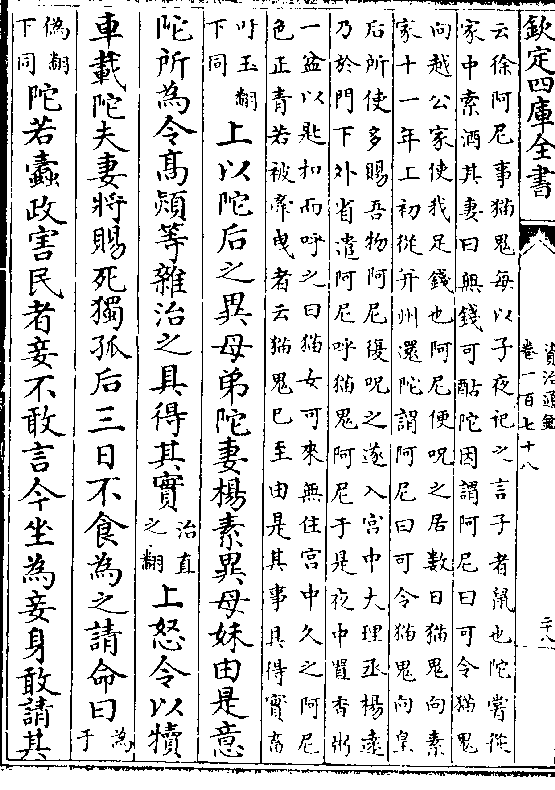 欽定四庫全書
資治通鑑
卷一百七十八
云徐阿尼事猫鬼每以子夜祀之言子者鼠也陀嘗從
家中索酒其妻曰無錢可酤陀因謂阿尼曰可令猫鬼
向越公家使我足錢也阿尼便呪之居數日猫鬼向素
家十一年上初從并州還陀謂阿尼曰可令猫鬼向皇
后所使多賜吾物阿尼復呪之遂入宮中大理丞楊遠
乃於門下外省遣阿尼呼猫鬼阿尼于是夜中置香粥
一盆以匙扣而呼之曰猫女可來無住宮中久之阿尼
色正青若被牽曳者云猫鬼已至由是其事具得實畜
吁玉翻下同上以陀后之異母弟陀妻楊素異母妹由是意
陀所為令高熲等雜治之具得其實治直之翻上怒令以犢
車載陀夫妻將賜死獨孤后三日不食為之請命曰為于
偽翻下同陀若蠹政害民者妾不敢言今坐為妾身敢請其